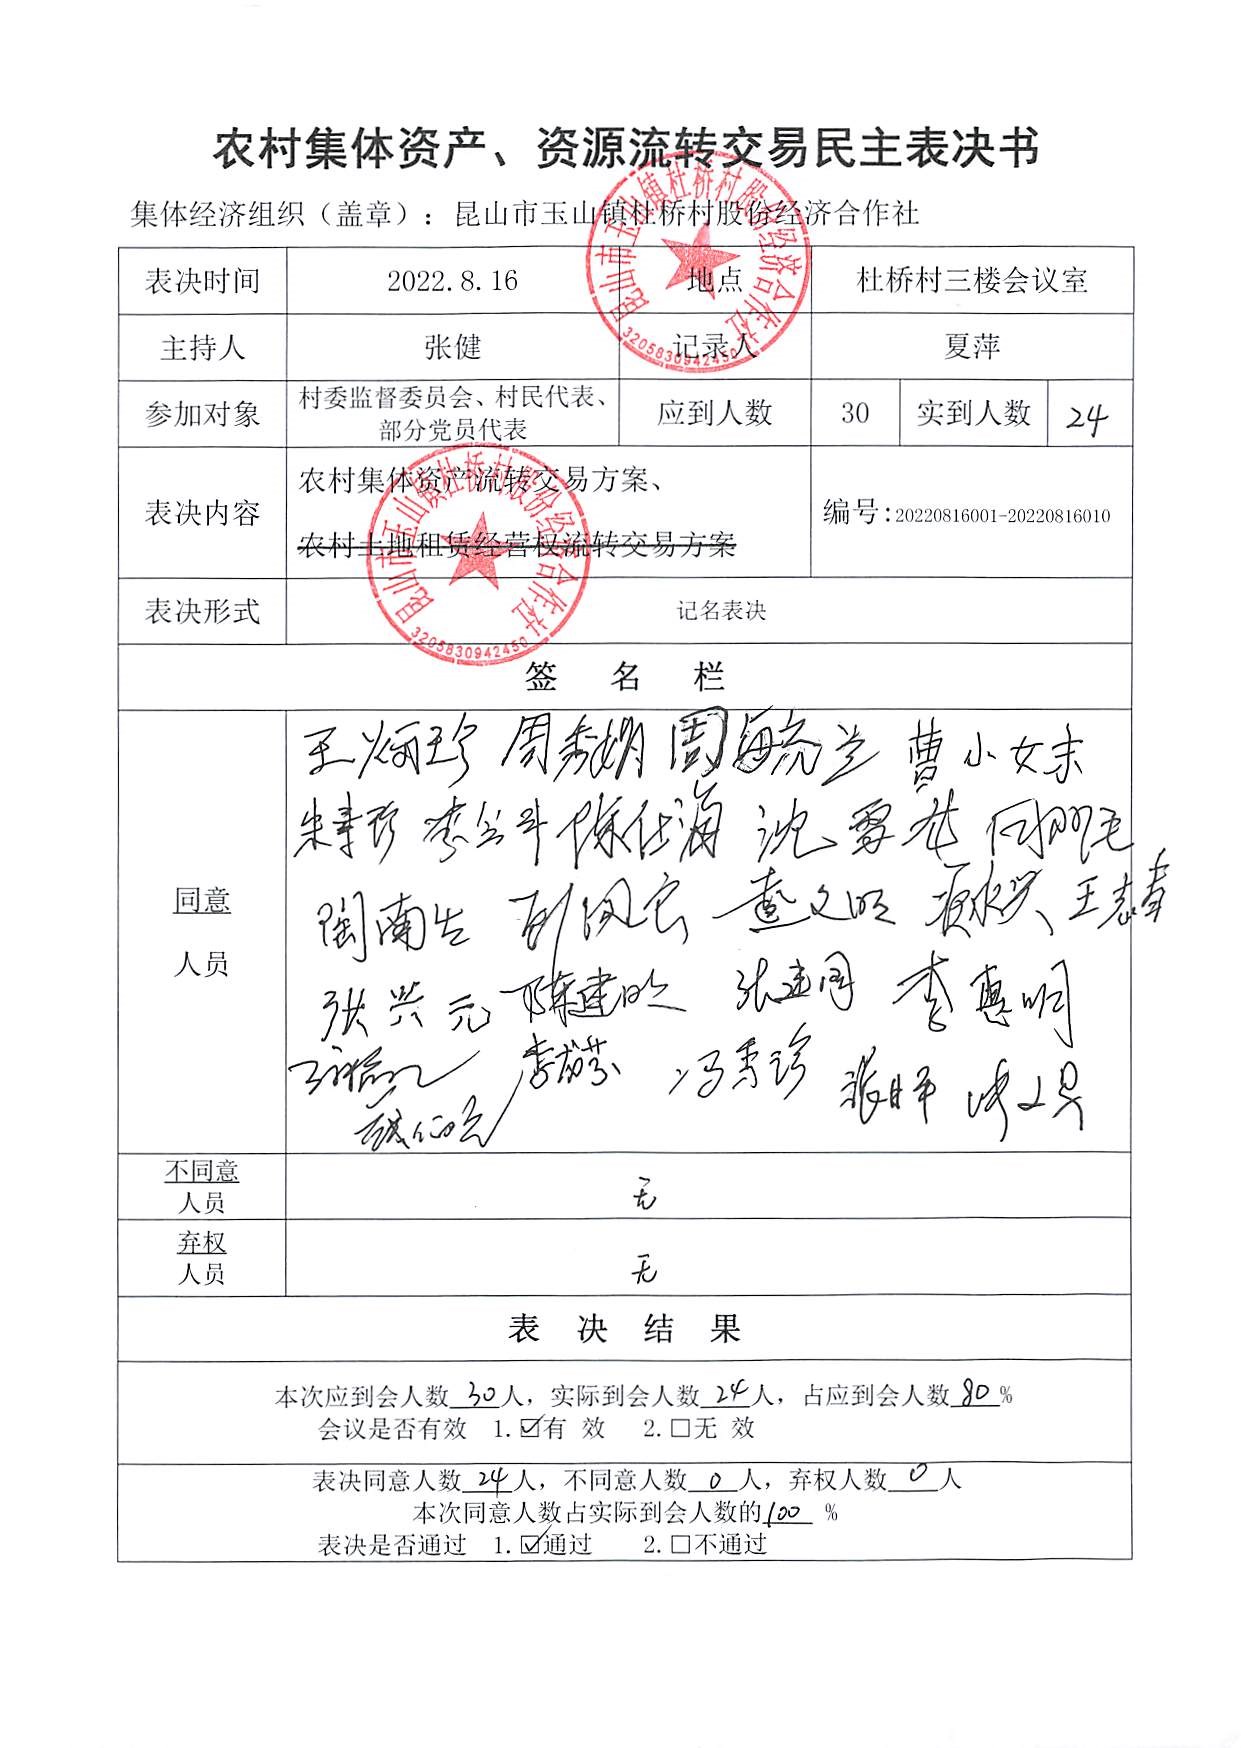 农村集体资产、资源流转交易民主表决书
集体经济组织（盖章）：昆山市玉山镇杜桥村股份经济合作社
昆山市玉山镇杜桥村股份经济合作社
3205830942450
表决时间 2022.8.16 地点 杜桥村三楼会议室
主持人 张健 记录人 夏萍
参加对象 村委监督委员会、村民代表、部分党员代表 应到人数 30 实到人数 24
表决内容 农村集体资产流转交易方案、 编号:20220816001-20220816010
农村土地租赁经营权流转交易方案
昆山市玉山镇杜桥村股份经济合作社
3205830942450
表决形式 记名表决
签 名 栏
同意
人员
王炳珍 周秀娟 曹小女
沈雪花
查文明 王志
张兴元 陈建明 张建国 李惠明
冯秀珍
不同意
人员 无
弃权
人员 无
表 决 结 果
本次应到会人数 30 人，实际到会人数 24 人，占应到会人数 80 %
会议是否有效 1.☑有 效 2.□无 效
表决同意人数 24 人，不同意人数 0 人，弃权人数 0 人
本次同意人数占实际到会人数的 100 %
表决是否通过 1.☑通过 2.□不通过